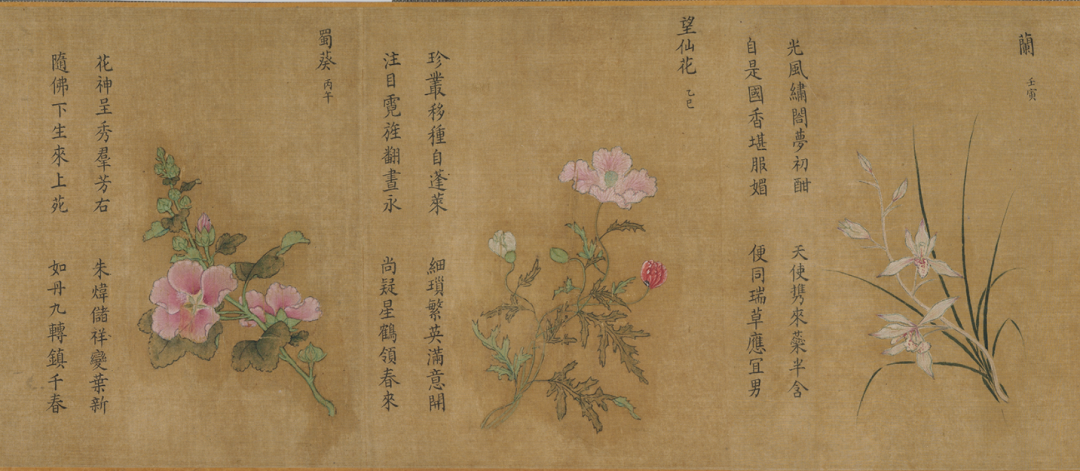 蘭 壬寅
光風繡閤夢初酣 天使携來蘂半含
自是國香堪服媚 便同瑞草應宜男
望仙花 乙巳
珍叢移種自蓬萊 細瑣繁英滿意開
注目霓旌翻晝永 尚疑星鶴領春來
蜀葵 丙午
花神呈秀羣芳右 朱煒儲祥變葉新
隨佛下生來上苑 如丹九轉鎮千春